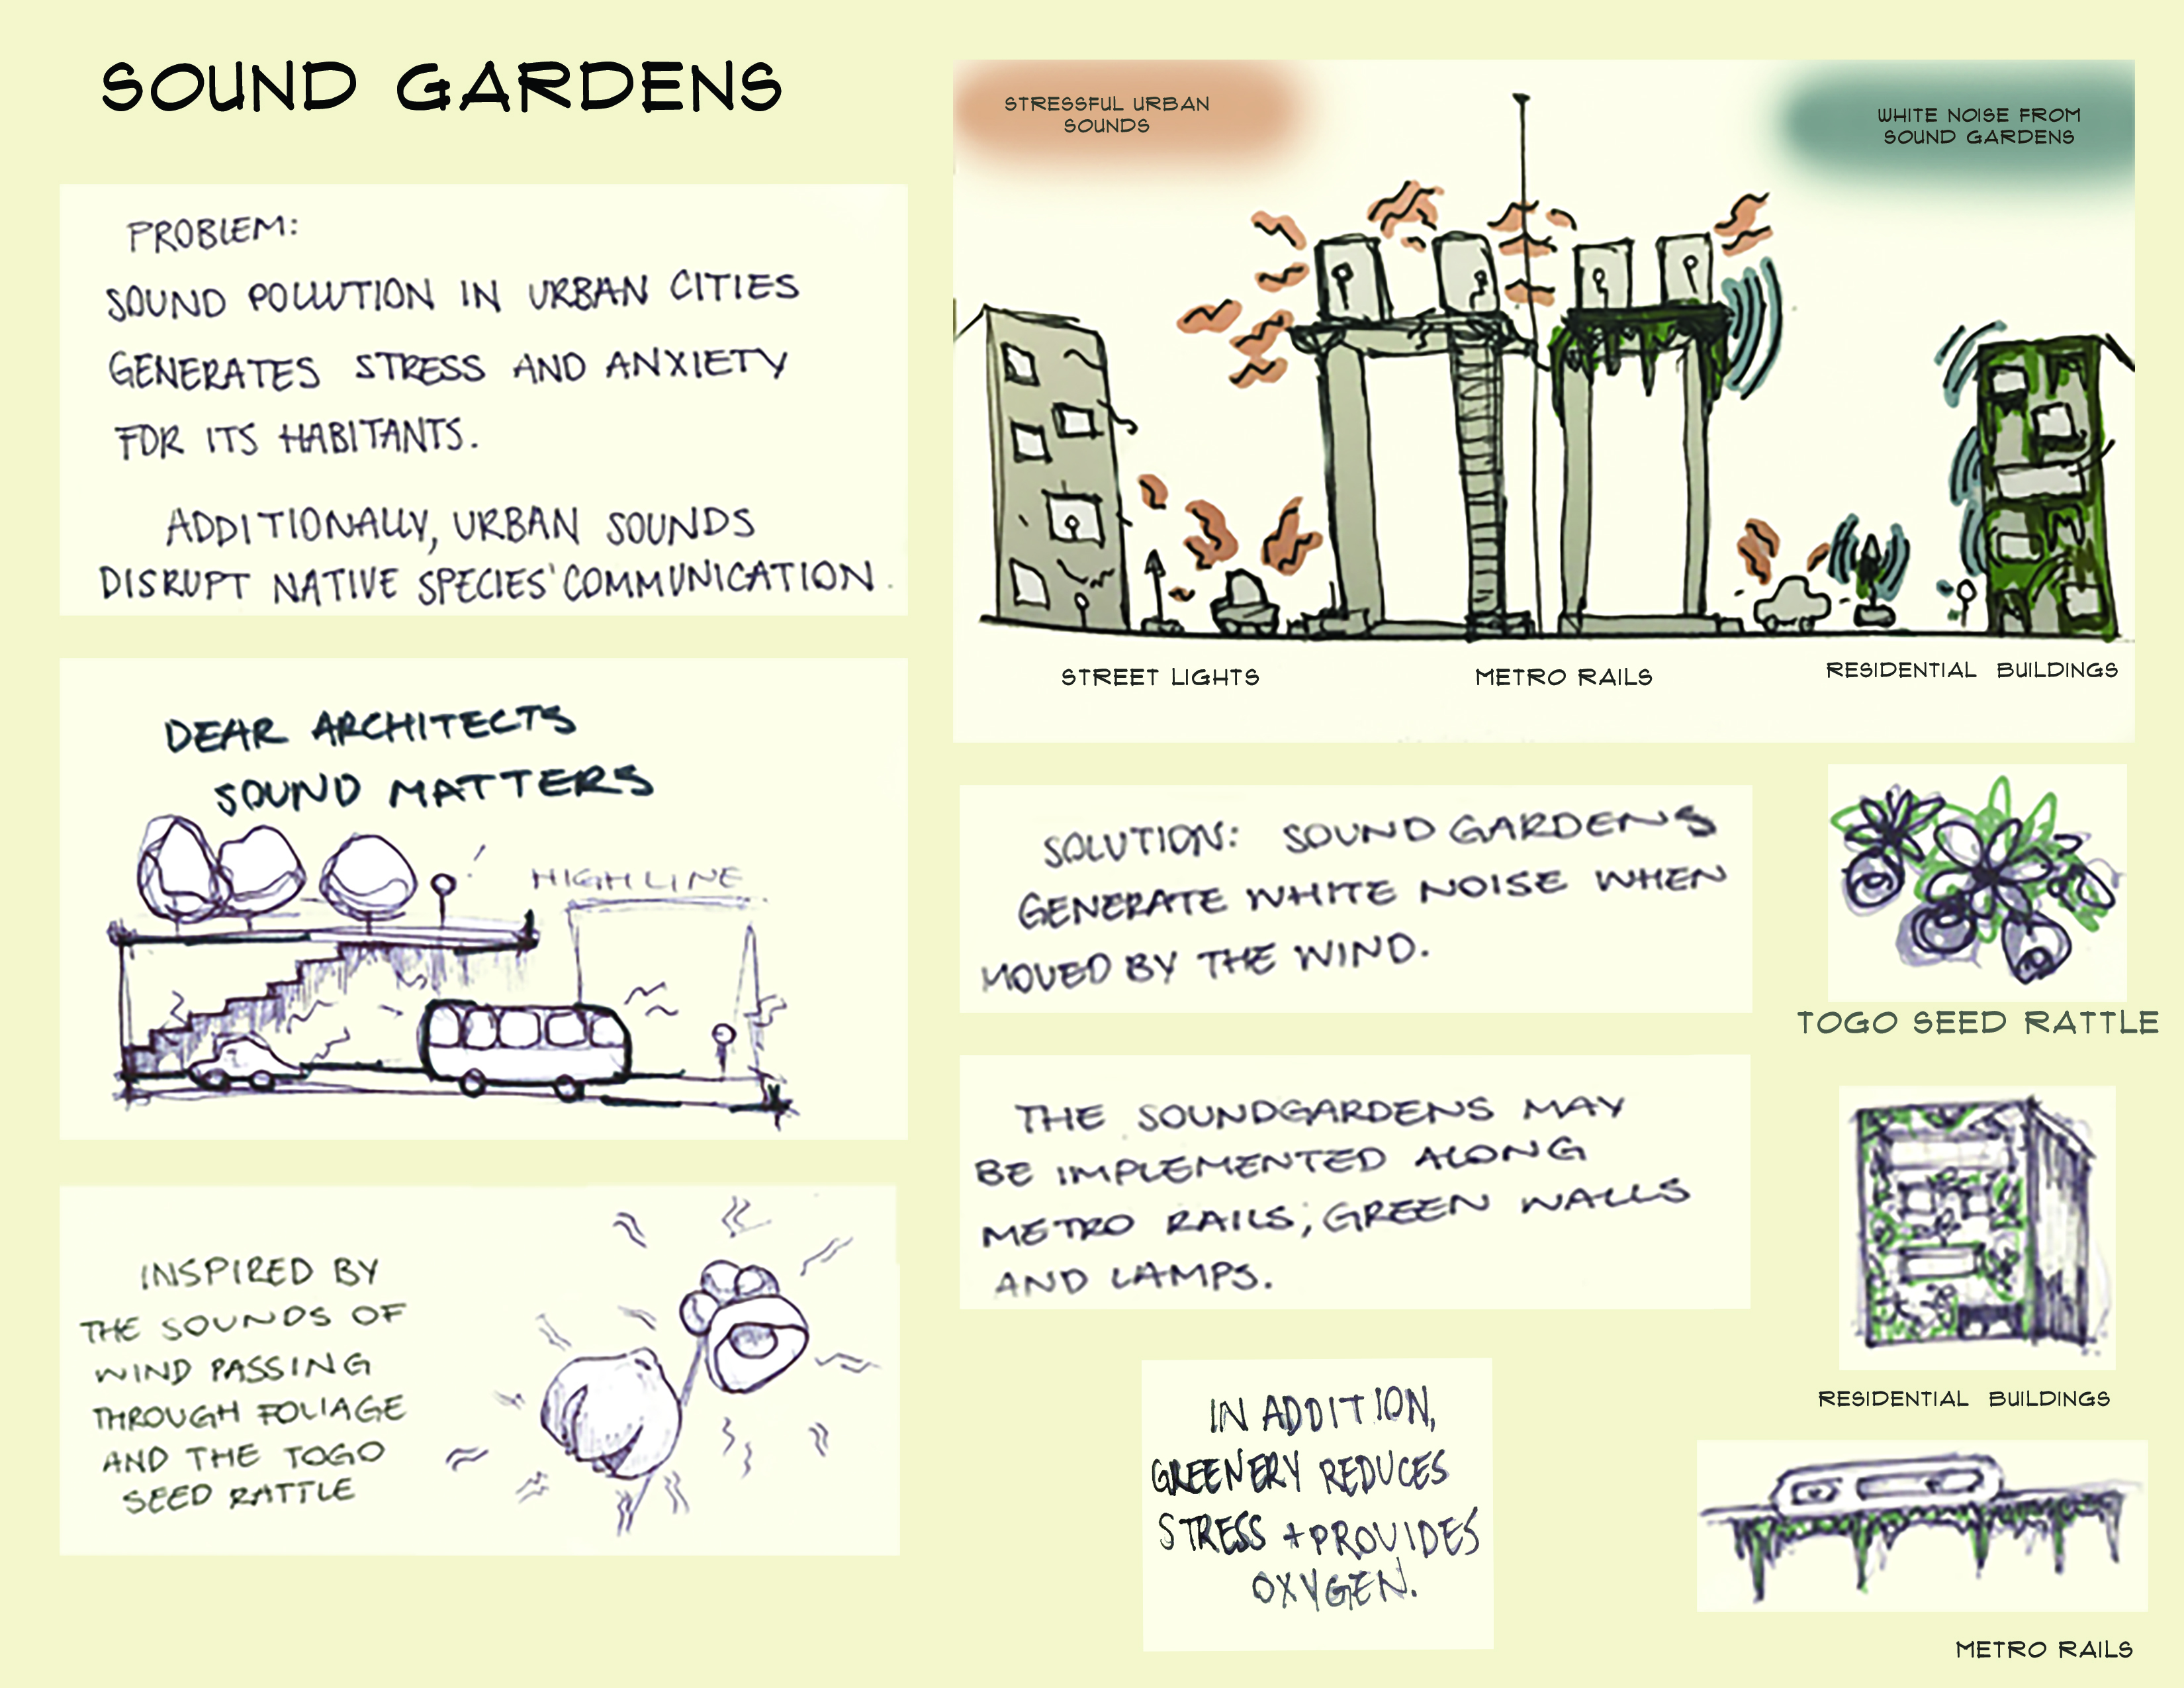 SOUND GARDENS
PROBLEM:
SOUND POLLUTION IN URBAN CITIES
GENERATES STRESS AND ANXIETY
FOR ITS HABITANTS.
ADDITIONALLY, URBAN SOUNDS
DISRUPT NATIVE SPECIES' COMMUNICATION.
DEAR ARCHITECTS
SOUND MATTERS
HIGHLINE
INSPIRED BY
THE SOUNDS OF
WIND PASSING
THROUGH FOLIAGE
AND THE TOGO
SEED RATTLE
STRESSFUL URBAN
SOUNDS
WHITE NOISE FROM
SOUND GARDENS
STREET LIGHTS
METRO RAILS
RESIDENTIAL BUILDINGS
SOLUTION: SOUND GARDENS
GENERATE WHITE NOISE WHEN
MOVED BY THE WIND.
TOGO SEED RATTLE
THE SOUNDGARDENS MAY
BE IMPLEMENTED ALONG
METRO RAILS, GREEN WALLS
AND LAMPS.
RESIDENTIAL BUILDINGS
IN ADDITION,
GREENERY REDUCES
STRESS + PROVIDES
OXYGEN.
METRO RAILS